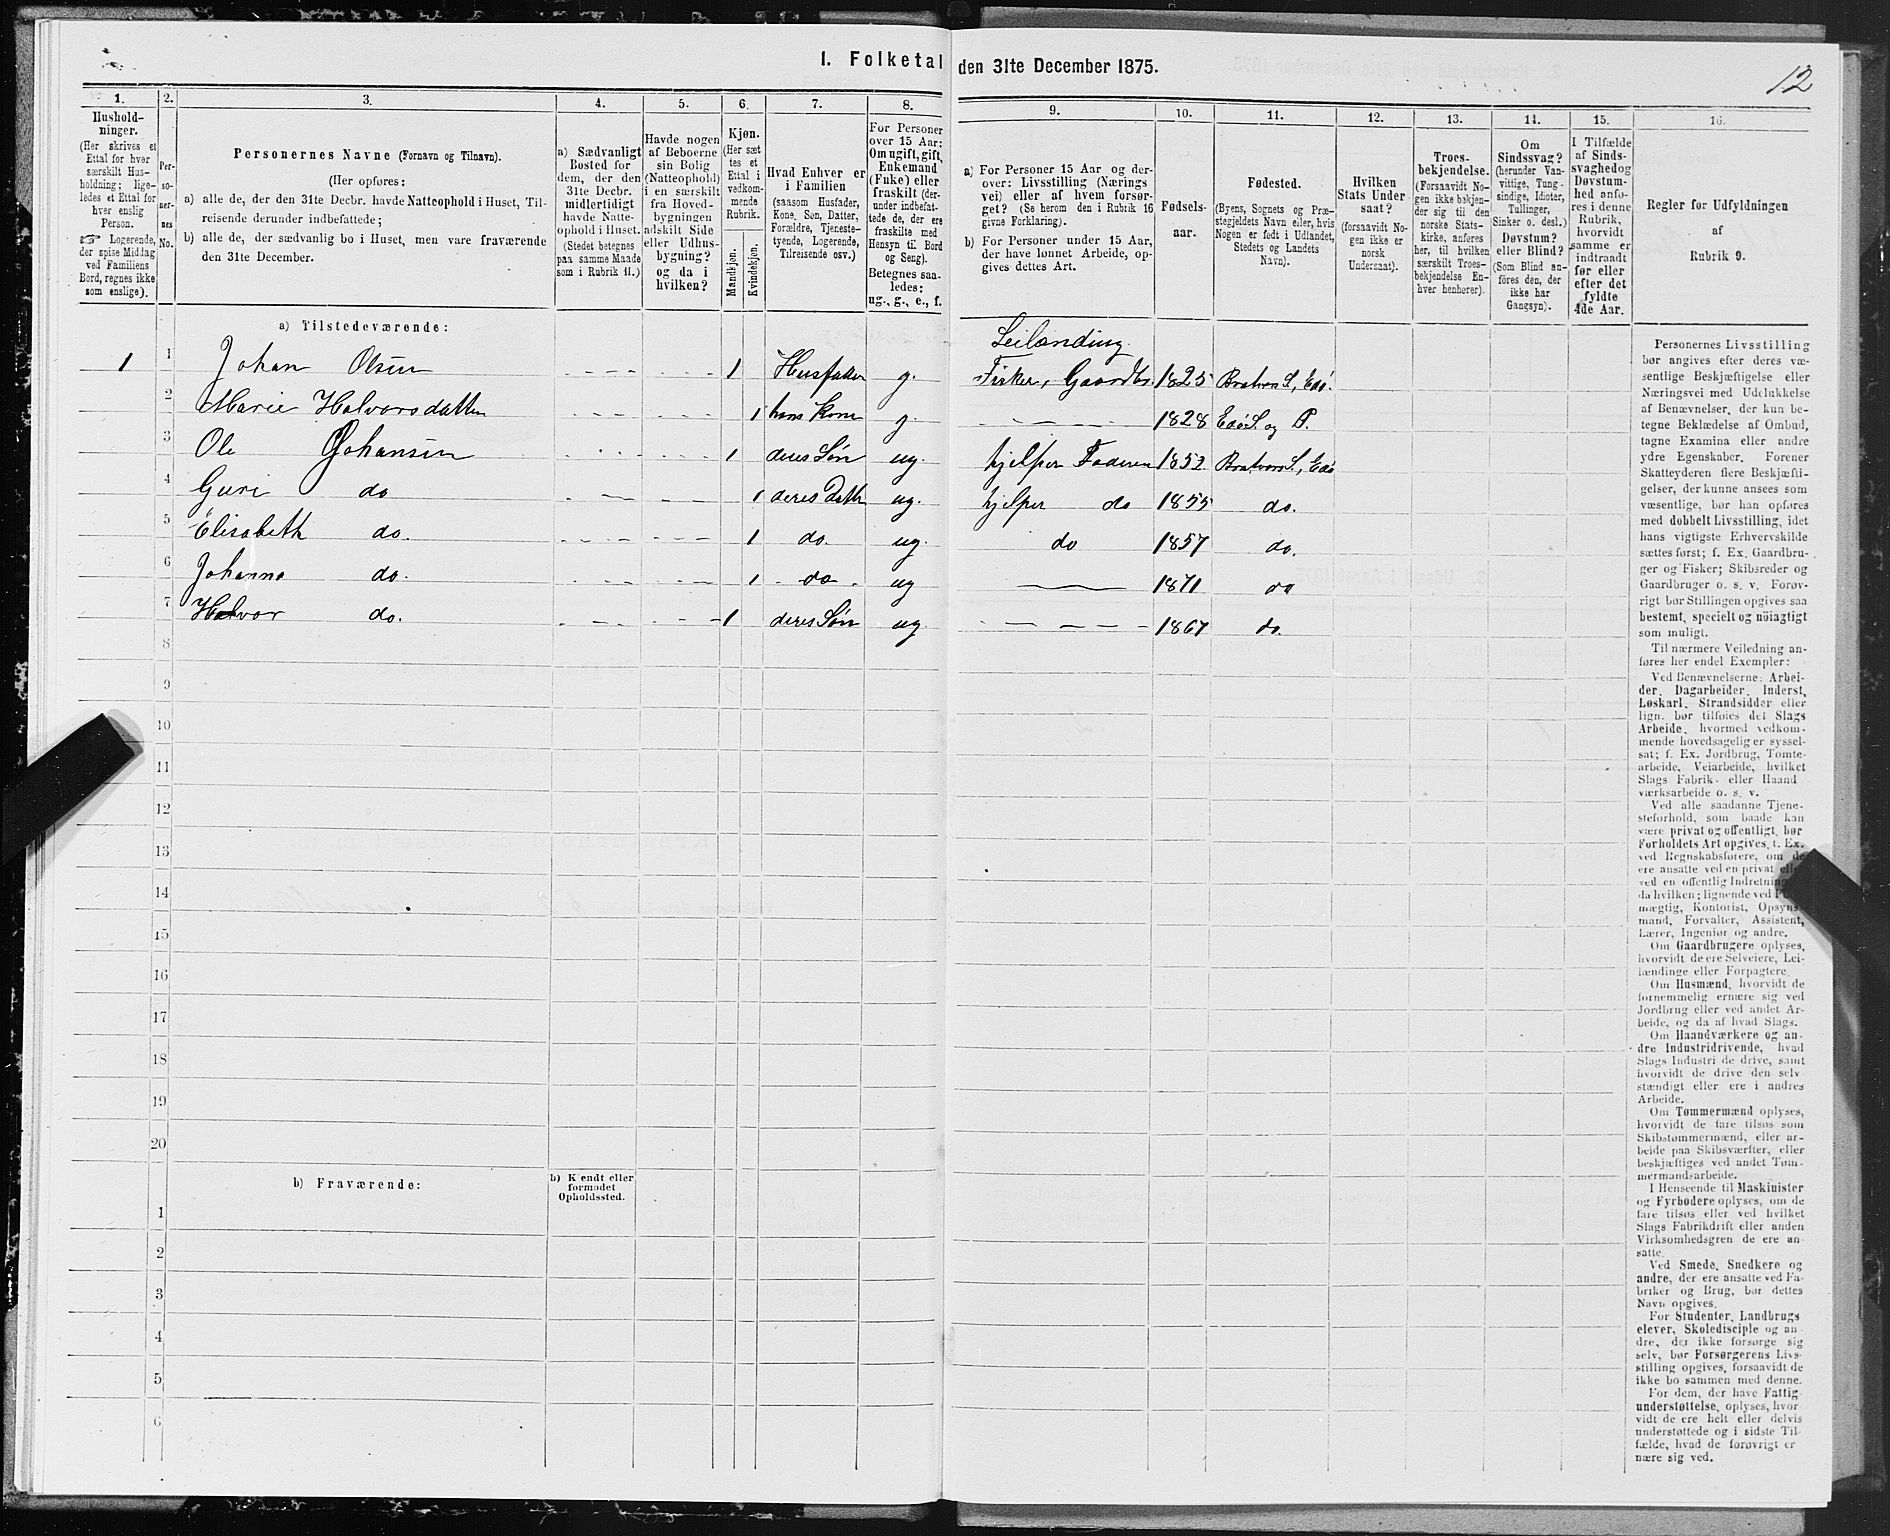 I. Folketal den 31te December 1875.
12
1.
Hushold-
ninger.
(Her skrives et
Ettal for hver
særskilt Hus-
holdning; lige-
ledes et Ettal for
hver enslig
Person.
☞ Logerende,
der spise Middag
ved Familiens
Bord, regnes ikke
som enslige).
2.
Per-
so-
ner-
nes
No.
3.
Personernes Navne (Fornavn og Tilnavn).
(Her opføres:
a) alle de, der den 31te Decbr. havde Natteophold i Huset, Til-
reisende derunder indbefattede;
b) alle de, der sædvanlig bo i Huset, men vare fraværende
den 31te December.
4.
a) Sædvanligt
Bosted for
dem, der den
31te Decbr.
midlertidigt
havde Natte-
ophold i Huset.
(Stedet betegnes
paa samme Maade
som i Rubrik 11.)
5.
Havde nogen
af Beboerne
sin Bolig
(Natteophold)
i en særskilt
fra Hoved-
bygningen
adskilt Side
eller Udhus-
bygning?
og da i
hvilken?
6.
Kjøn.
(Her sæt
tes et
Ettal i
vedkom-
mende
Rubrik.
Mandkjøn.
Kvindekjøn.
7.
Hvad Enhver er
i Familien
(saasom Husfader,
Kone, Søn, Datter,
Forældre, Tjeneste-
tyende, Logerende,
Tilreisende osv.)
8.
For Personer
over 15 Aar:
Om ugift, gift,
Enkemand
(Enke) eller
fraskilt (der-
under indbefat-
tede de, der ere
fraskilte med
Hensyn til Bord
og Seng).
Betegnes saa-
ledes:
ug., g., e., f.
9.
a) For Personer 15 Aar og der-
over: Livsstilling (Nærings
vei) eller af hvem forsør-
get? (Se herom den i Rubrik 16
givne Forklaring).
b) For Personer under 15 Aar,
der have lønnet Arbeide, op-
gives dettes Art.
10.
Fødsels-
aar.
11.
Fødested.
(Byens, Sognets og Præ-
stegjeldets Navn eller, hvis
Nogen er født i Udlandet,
Stedets og Landets
Navn).
12.
Hvilken
Stats Under
saat?
(forsaavidt No-
gen ikke er
norsk
Undersaat).
13.
Troes-
bekjendelse.
(Forsaavidt No-
gen ikke bekjen-
der sig til den
norske Stats-
kirke, anføres
her, til hvilken
særskilt Troes-
bekjendelse En-
hver henhører).
14.
Om
Sindssvag?
(herunder Van-
vittige, Tung-
sindige, Idioter,
Tullinger,
Sinker o. desl.)
Døvstum?
eller Blind?
(Som Blind an-
føres den, der
ikke har
Gangsyn).
15.
I Tilfælde
af Sinds-
svaghed og
Døvstum-
hed anfø-
res i denne
Rubrik,
hvorvidt
samme er
indtraadt
før eller
efter det
fyldte
4de Aar.
16.
Regler for Udfyldningen
af
Rubrik 9.
a) Tilstedeværende:
Leilænding
1 1 Johan Olsen 1 Husfader g. Fisker, Gaardbr. 1825 Bratvær S., Edø.
2 Marie Halvorsdatter 1 hans Kone g. 1828 Edø S. og P.
3 Ole Johansen 1 deres Søn ug. hjelper Faderen 1852 Bratvær S., Edø
4 Guri do 1 deres Datt ug. hjelper do 1855 do.
5 Elisabeth do. 1 do. ug. do 1857 do.
6 Johanna do. 1 do. ug 1871 do
7 Halvor do. 1 deres Søn ug. 1867 do.
8
9
10
11
12
13
14
15
16
17
18
19
20
b) Fraværende:
b) Kjendt eller
formodet
Opholdssted.
1
2
3
4
5
6
Personernes Livsstilling
bør angives efter deres væ-
sentlige Beskjæftigelse eller
Næringsvei med Udelukkelse
af Benævnelser, der kun be-
tegne Beklædelse af Ombud,
tagne Examina eller andre
ydre Egenskaber. Forener
Skatteyderen flere Beskjæfti-
gelser, der kunne ansees som
væsentlige, bør han opføres
med dobbelt Livsstilling, idet
hans vigtigste Erhvervskilde
sættes først; f. Ex. Gaardbru-
ger og Fisker; Skibsreder og
Gaardbruger o. s. v. Forøv-
rigt bør Stillingen opgives saa
bestemt, specielt og nøiagtigt
som muligt.
Til nærmere Veiledning an-
føres her endel Exempler:
Ved Benævnelserne: Arbei-
der, Dagarbeider, Inderst,
Løskarl, Strandsidder eller
lign. bør tilføies det Slags
Arbeide, hvormed vedkom-
mende hovedsagelig er syssel-
sat; f. Ex. Jordbrug, Tomte-
arbeide, Veiarbeide, hvilket
Slags Fabrik- eller Haand
værksarbeide o. s. v.
Ved alle saadanne Tjene-
steforhold, som baade kan
være privat og offentligt, bør
Forholdets Art opgives, f. Ex.
ved Regnskabsførere, om de
ere ansatte ved en privat eller
ved en offentlig Indretning
da hvilken; lignende ved
mægtig, Kontorist, Opsyns-
mand, Forvalter, Assistent,
Lærer, Ingeniør og andre.
Om Gaardbrugere oplyses,
hvorvidt de ere Selveiere, Lei-
lændinge eller Forpagtere.
Om Husmænd, hvorvidt de
fornemmelig ernære sig ved
Jordbrug eller ved andet Ar-
beide, og da af hvad Slags.
Om Haandværkere og an-
dre Industridrivende, hvad
Slags Industri de drive, samt
hvorvidt de drive den selv-
stændigt eller ere i andres
Arbeide.
Om Tømmermænd oplyses,
hvorvidt de fare tilsøs som
Skibstømmermænd, eller ar-
beide paa Skibsværfter, eller
beskjæftiges ved andet Tøm-
mermandsarbeide.
I Henseende til Maskinister
og Fyrbødere oplyses, om de
fare tilsøs eller ved hvilket
Slags Fabrikdrift eller anden
Virksomhedsgren de ere an-
satte.
Ved Smede, Snedkere og
andre, der ere ansatte ved Fa-
briker og Brug, bør dettes
Navn opgives.
For Studenter, Landbrugs
elever, Skoledisciple og an-
dre, der ikke forsørge sig
selv, bør Forsørgerens Livs-
stilling opgives, forsaavidt de
ikke bo sammen med denne.
For dem, der have Fattig-
understøttelse, oplyses, hvor-
vidt de ere helt eller delvis
understøttede og i sidste Til-
fælde, hvad de forøvrigt er
nære sig ved.